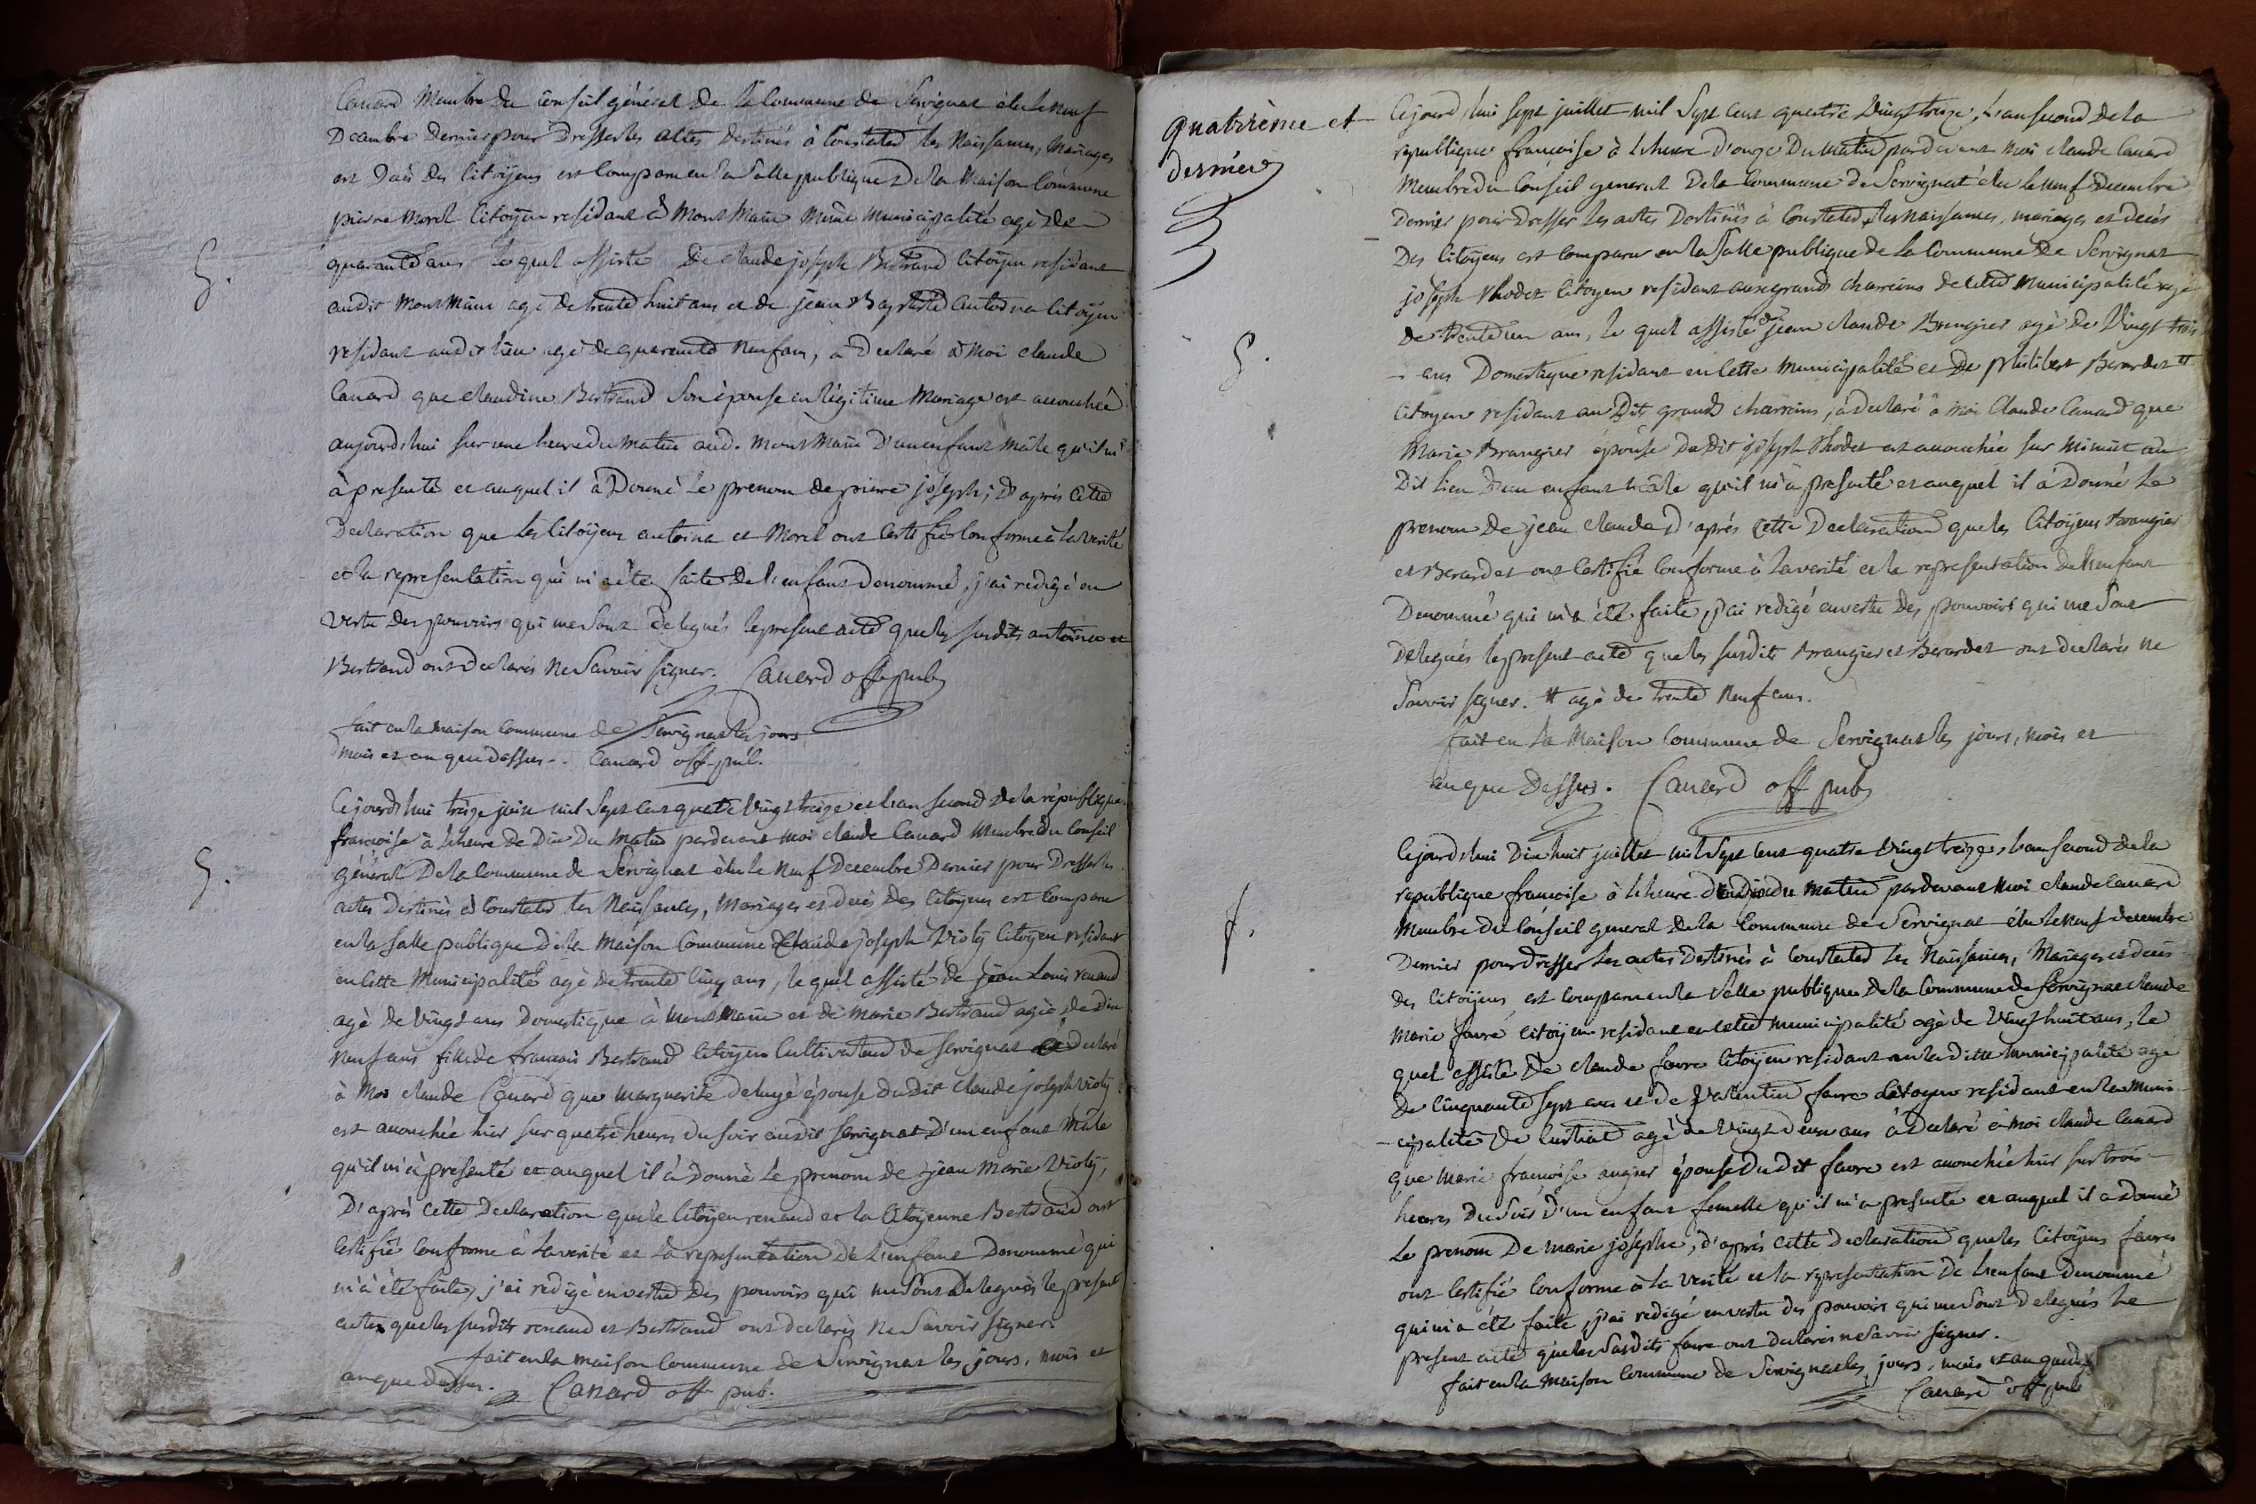 Canard Membre du Conseil général de la Commune de Servignat élu le neuf
Decembre dernier pour Dresser les actes destinés à Constater les Naissances, Mariages
et Décès des Citoÿens est Comparu en la Salle publique de la Maison Commune
pierre Morel Citoÿen residant à Mont Main même municipalité agé de
quarante ans lequel assisté de claude joseph Bertrand Citoÿen residant
audit Mont Main agé de trente huit ans et de jean Baptiste antoina Citoÿen
residant audit lieu agé de quarante neuf ans, à Declaré à moi claude
Canard que claudine Bertrand Son épouse en légitime Mariage est accouchée
aujourd'hui sur une heure du matin aud. Mont Main d'un enfant mâle qu'il m'
à presenté et auquel il à Donné le prenom de pierre joseph; d'aprés cette
Declaration que les Citoÿens antoina et Morel ont Certifié Conforme à la verité
et la representation qui m'a été faite de l'enfant Denommé, j'ai redigé en
vertu des pouvoirs qui me sont delegués le present acte que les susdits antoina et
Bertrand ont declarés ne Savoir signer. Canard off pub
fait en la maison Commune de Servignat les jours
mois et an que dessus. Canard off. pub.
S.
Cejourd'hui treize juin mil Sept Cent quatre Vingt treize et l'an second de la république
françoise à l'heure de Dix du matin pardevant moi claude Canard Membre du Conseil
général De la Commune de Servignat élu le neuf Decembre Dernier pour Dresser les
actes Destinés à Constater les Naissances, Mariages et decés des Citoyens est Comparu
en la Salle publique de la Maison Commune Claude joseph Violÿ Citoyen residant
en cette Municipalité agé de trente Cinq ans, lequel assisté de jean Louis renaud
agé de Vingt ans Domestique à Mont Main et de Marie Bertrand agée de Dix
neuf ans fille de francois Bertrand Citoÿen Cultivateur de Servignat à declaré
à Moi claude Canard que Marguerite deluyé épouse dudit claude joseph Violÿ
est accouchée hier sur quatre heures du soir audit Servignat d'un enfant Male
qu'il m'à presenté et auquel il à Donné le prenom de jean Marie Violÿ,
D'aprés cette Declaration que le Citoÿen renaud et la Citoÿenne Bertrand ont
Certifié Conforme à la verité et la representation de l'enfant Denommé qui
m'à été faite, j'ai redigé en vertu des pouvoirs qui me sont delegués le present
acte que les susdits renaud et Bertrand ont declarés ne Savoir signer.
fait en la maison Commune de Servignat les jours, mois et
an que dessus. Canard off pub.
S.
quatrième et
dernier
Cejourd'hui sept juillet mil Sept Cent quatre Vingt treize, l'an second de la
republique françoise à l'heure d'onze du matin pardevant moi claude Canard
Membre du Conseil general de la Commune de Servignat élu le neuf Decembre
Dernier pour Dresser les actes Destinés à Constater les naissances, mariages et decés
Des Citoÿens est Comparu en la Salle publique de la Commune de Servignat
joseph Rhodet Citoyen residant aux grands charreins de cette Municipalité agé
de trente un ans, lequel assisté de jean claude Brangier agé de Vingt trois
ans Domestique residant en cette Municipalité et de Philibert Berardet #
Citoyen residant au Dit grands charreins, à declaré à moi Claude Canard que
Marie Brangier épouse dudit joseph Rhodet est accouchée sur minuit au
Dit lieu d'un enfant mâle qu'il m'à presenté et auquel il à Donné le
prenom de jean claude D'aprés cette Declaration que les Citoÿens Brangier
et Berardet ont Certifié Conforme à la verité et la representation de l'enfant
Denommé qui m'à été faite, j'ai redigé en vertu des pouvoirs qui me sont
Delegués le present acte que les susdits Brangier et Berardet ont declarés ne
Savoir signer. # agé de trente neuf ans.
fait en la Maison Commune de Servignat les jours, mois et
an que Dessus. Canard off pub
S.
Cejourd'hui Dix huit juillet mil Sept Cent quatre Vingt treize, l'an second de la
republique françoise à l'heure de dix du matin pardevant moi claude Canard
Membre du Conseil general de la Commune de Servignat élu le neuf decembre
Dernier pour dresser les actes Destinés à Constater les Naissances, Mariages et decés
des Citoÿens est Comparu en la Salle publique de la Commune de Servignat claude
Marie favre Citoÿen residant en cette municipalité agé de Vingt huit ans, le
quel assisté de claude favre Citoÿen residant en la ditte municipalité agé
de Cinquante sept ans et de Valentin favre Citoyen residant en la muni-
-cipalité de Curtiat agé de Vingt deux ans à Declaré à moi claude Canard
que Marie françoise augner épouse du dit favre est accouchée hier sur trois
heures du soir d'un enfant femelle qu'il m'a presenté et auquel il a donné
le prenom de Marie josephe, d'aprés cette declaration que les Citoÿens favre
ont Certifié Conforme à la verité et la representation de l'enfant Denommé
qui m'a été faite, j'ai redigé en vertu des pouvoirs qui me sont delegués le
present acte que les Susdits favre ont declarés ne Savoir signer.
fait en la Maison Commune de Servignat les jours, mois et an que
Canard off pub
f.